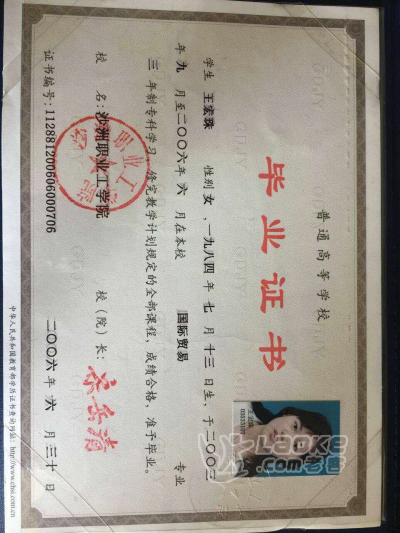 普通高等学校
毕业证书
学生 王宏珠 性别 女 , 一九八四年 七 月 十三 日生，于二〇〇三
年 九 月至二〇〇六年 六 月在本校 国际贸易 专业
三 年制专科学习，修完教学计划规定的全部课程，成绩合格，准予毕业。
校 名: 沙洲职业工学院 校（院）长:
证书编号: 112881200606000706 二〇〇六年 六 月 三十 日
中华人民共和国教育部学历证书查询网址: http://www.chsi.com.cn